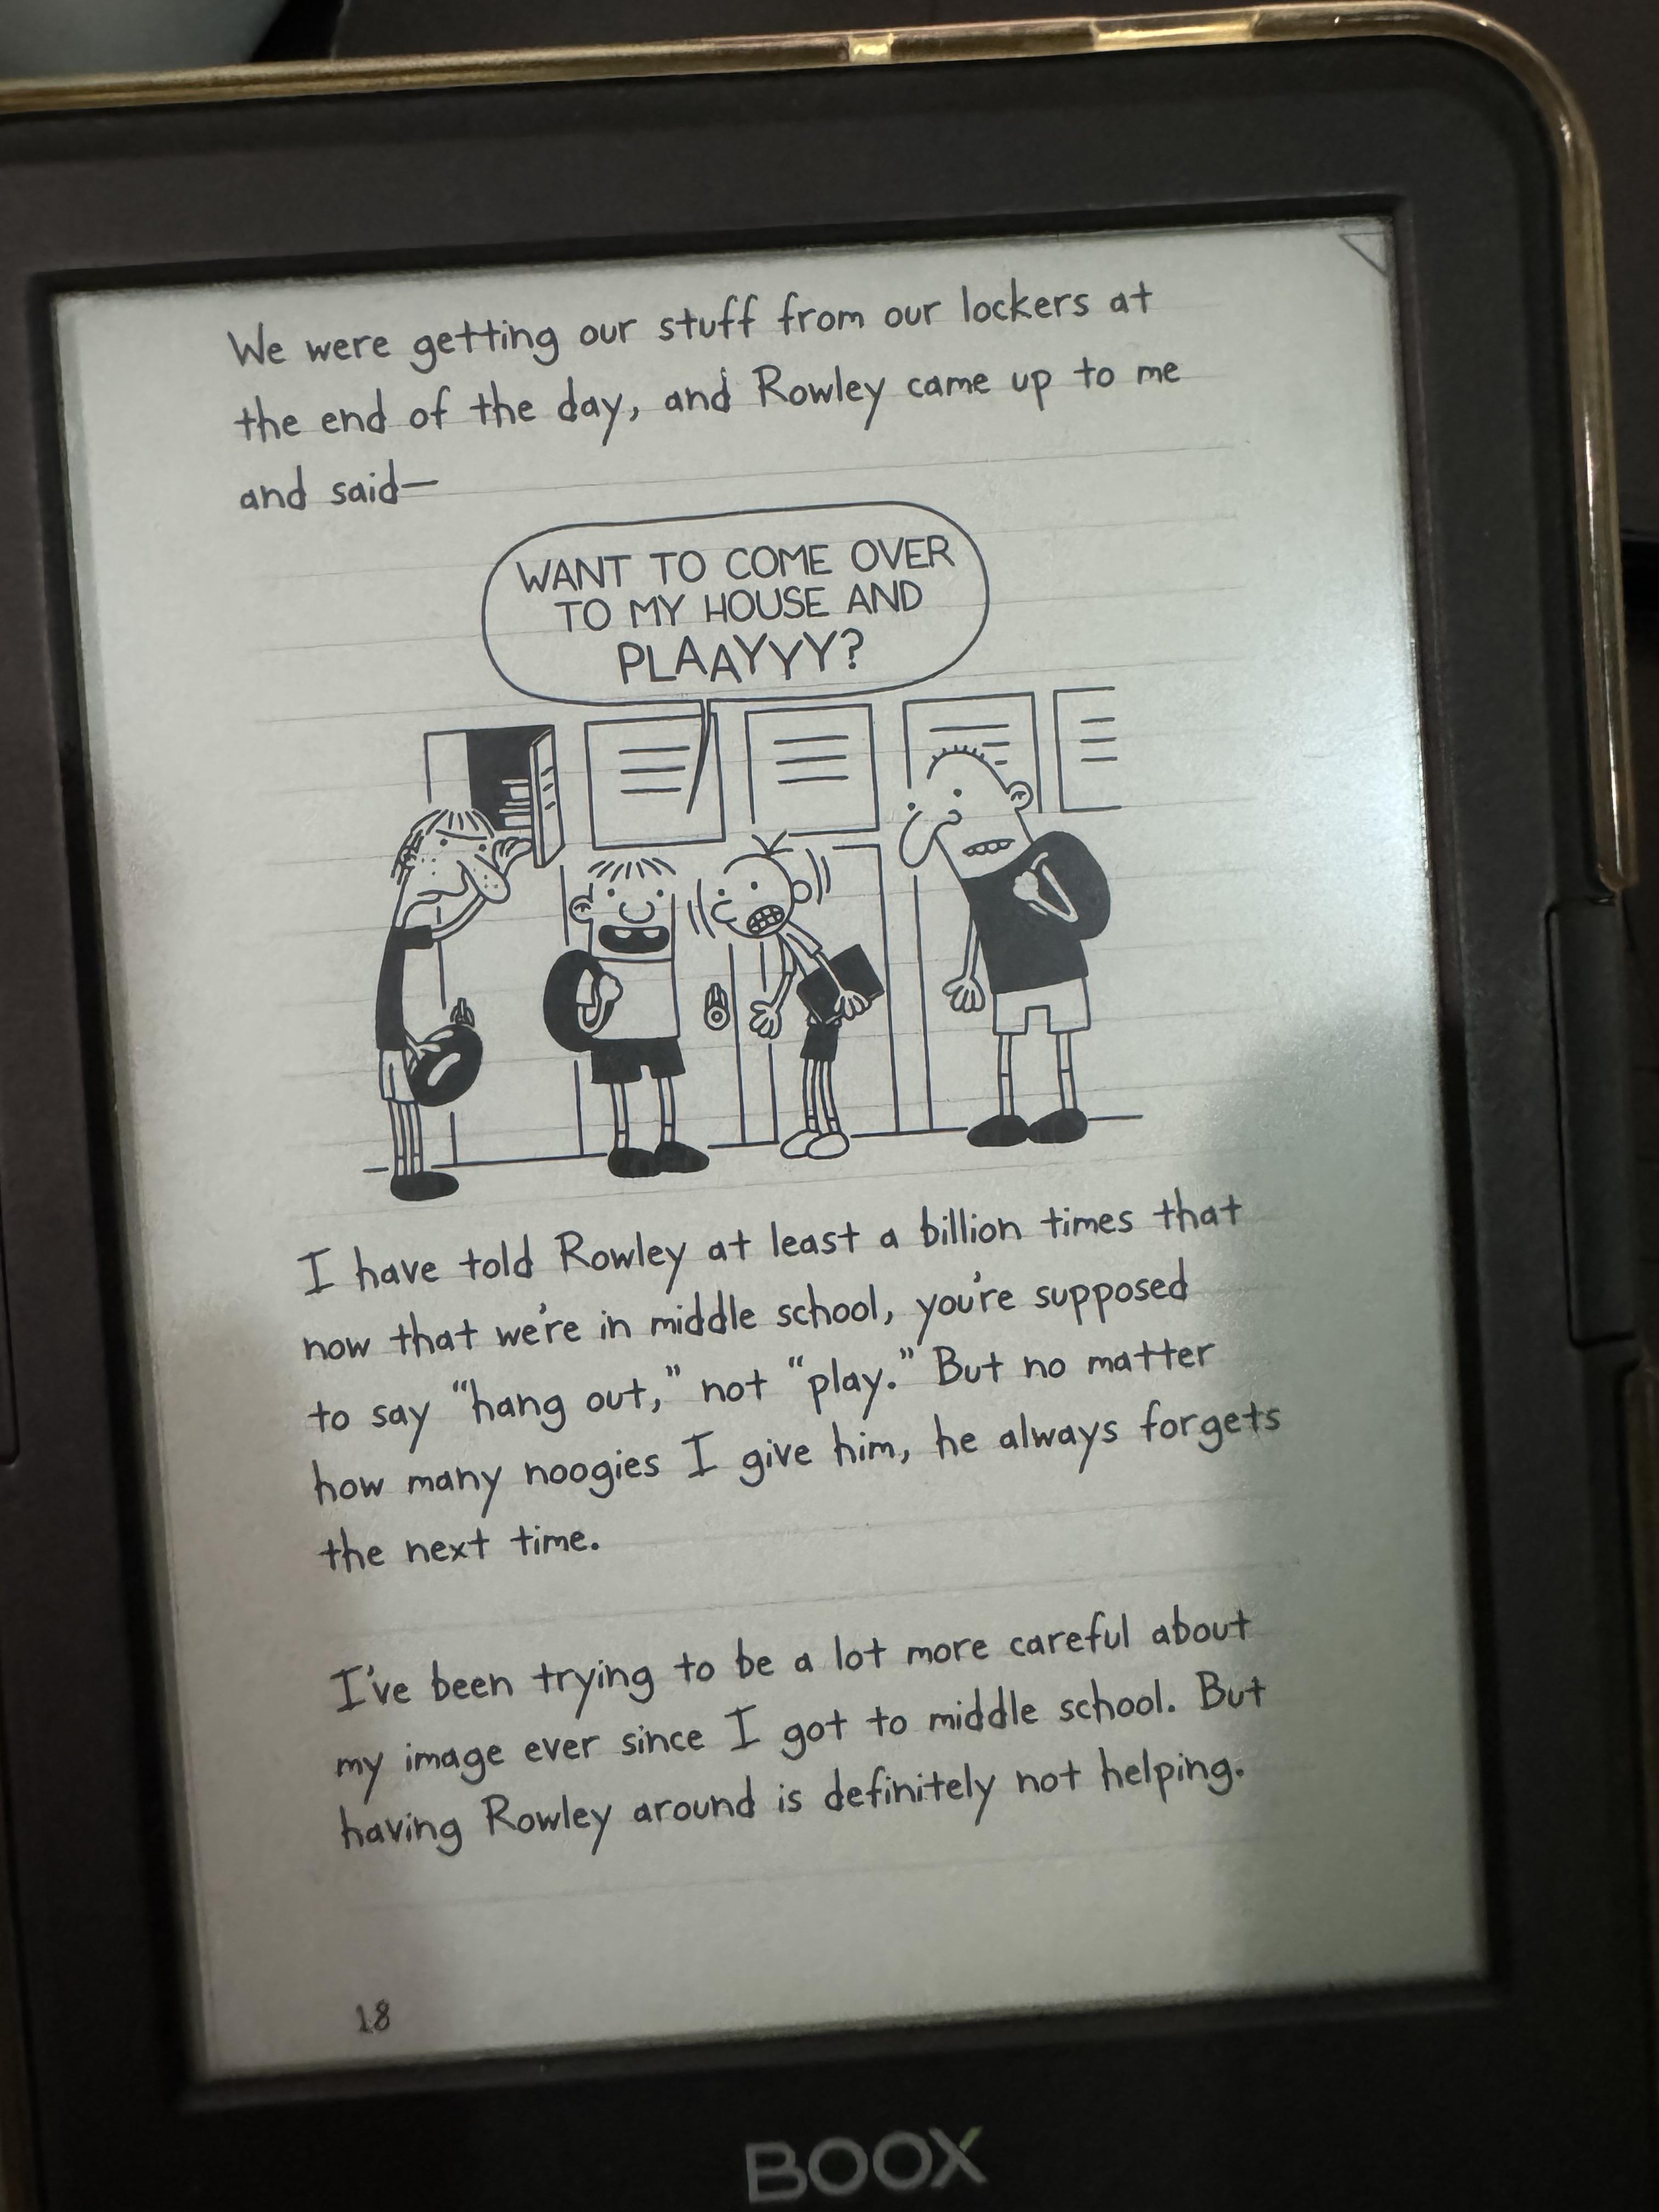 We were getting our stuff from our lockers at
the end of the day, and Rowley came up to me
and said—
WANT TO COME OVER
TO MY HOUSE AND
PLAAYYY?
I have told Rowley at least a billion times that
now that we're in middle school, you're supposed
to say “hang out,” not “play.” But no matter
how many noogies I give him, he always forgets
the next time.
I've been trying to be a lot more careful about
my image ever since I got to middle school. But
having Rowley around is definitely not helping.
18
BOOX